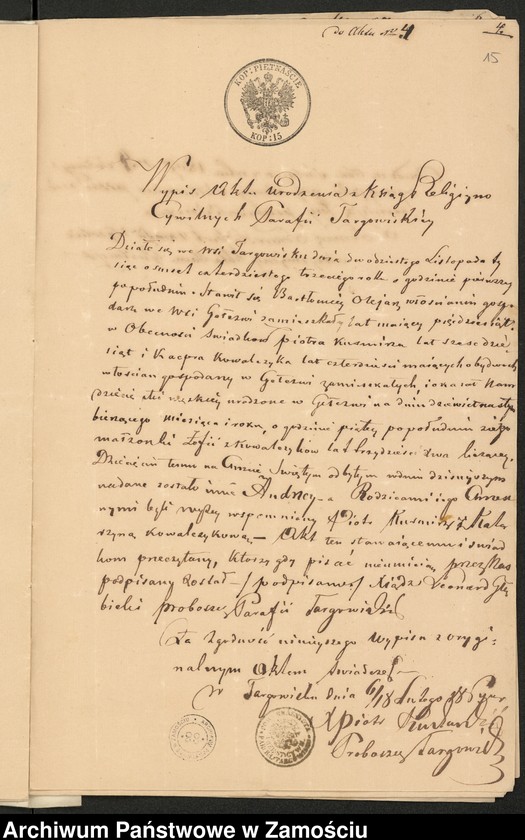 do Aktu Nr 4
4
15
KOP: PIĘTNAŚCIE
KOP: 15
Wypis Aktu urodzenia z Księgi Religijno
Cywilnych Parafii Targowiskiej
Działo się we Wsi Targowisku dnia dwudziestego Listopada ty
siąc osmset czterdziestego trzeciego roku o godzinie pierwszy
popołudniu. Stawił się Bartłomiej Olejarz włościanin gospo
darz we Wsi Gotezwi zamieszkały lat mający pięćdziesiąt
w Obecności Świadków Piotra Kuśmirza lat sześćdzie
siąt i Kacpra Kowalczyka lat czterdzieści mających obydwóch
włościan gospodarzy w Gotezwi zamieszkałych i okazał Nam
dziecię płci męskiej urodzone w Gotezwi na dniu dziewietnastym
bieżącego miesiąca i roku, o godzinie piątej popołudniu z jego
małżonki Zofii z Kowalczyków lat trzydzieści dwa liczącej
Dziecięciu temu na Chrzcie Świętym odbytym w dniu dzisiejszym
nadane zostało imie Andrzej a Rodzicami jego Chrzes
nymi byli wyżej wspomniony Piotr Kuśmirz z Kata
rzyną Kowalczykową — Akt ten stawającemu i świad
kom przeczytany, którzy gdy pisać nieumieją przez Nas
podpisany został — /podpisano/ Xiądz Leonard
Proboszcz Parafii Targowiski
Za zgodność niniejszego wypisu z oryg
nalnym Aktem świadczę
w Targowisku dnia 6/18 Lutego 18
X Piotr
Proboszcz Targowiski
Archiwum Państwowe w Zamościu